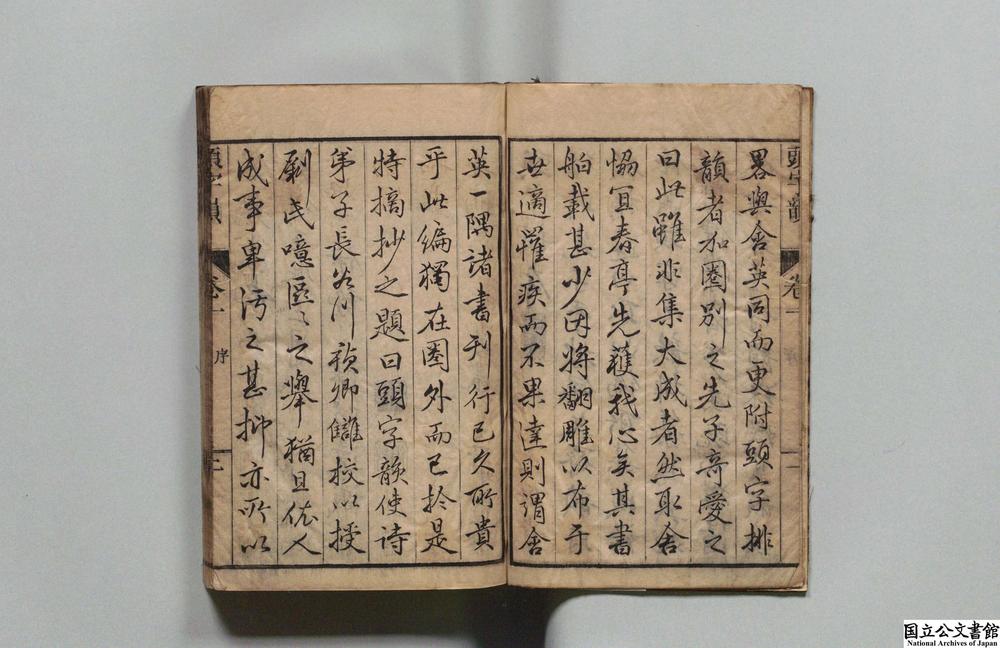 畧與含英同而更附頭字排
韻者加圏別之先子奇愛之
曰此雖非集大成者然取舍
恊冝春亭先獲我心矣其書
舶載甚少因将翻雕以布于
世適罹疾而不果達則謂含
英一隅諸書刊行已久所貴
乎此編獨在圏外而已於是
特摘抄之題曰頭字韻使詩
弟子長谷川卿讎校以授
剞氏噫區〻之擧猶且依人
成事卑汚之甚抑亦所以
頭字韻 卷一 序 二
国立公文書館
National Archives of Japan